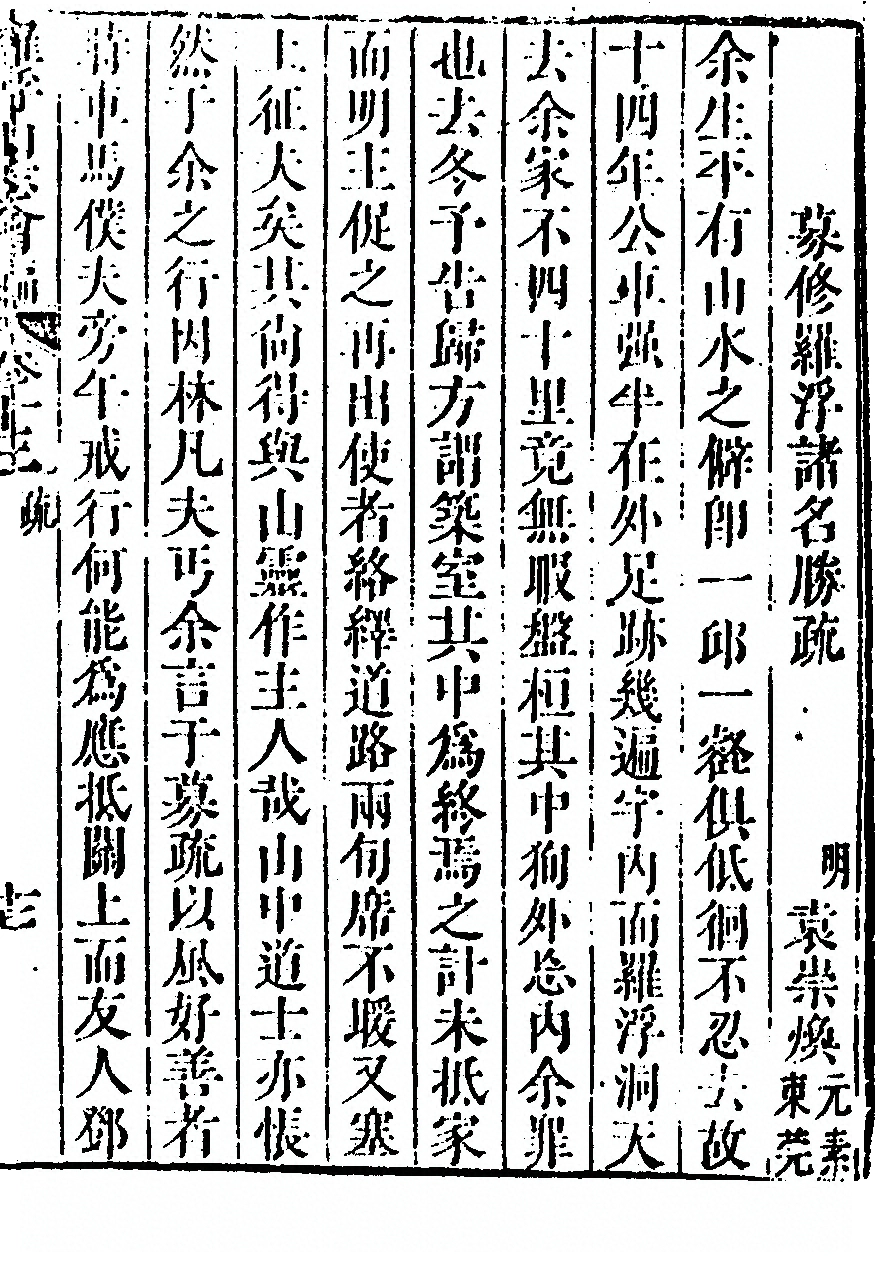 募修羅浮諸名勝疏 明 袁崇煥 元素 東莞
余生平有山水之僻卽一邱一壑俱低徊不忍去故
十四年公車强半在外足跡幾遍宇內而羅浮洞天
去余家不四十里竟無暇盤桓其中狥外忘內余罪
也去冬予告歸方謂築室其中爲終焉之計未抵家
而明主促之再出使者絡繹道路兩旬席不煖又塞
上征夫矣其尙得與山靈作主人哉山中道士亦悵
然于余之行因林凡夫丐余言于募疏以風好善者
時車馬僕夫旁午戒行何能爲應抵關上而友人鄧
山志會編 疏